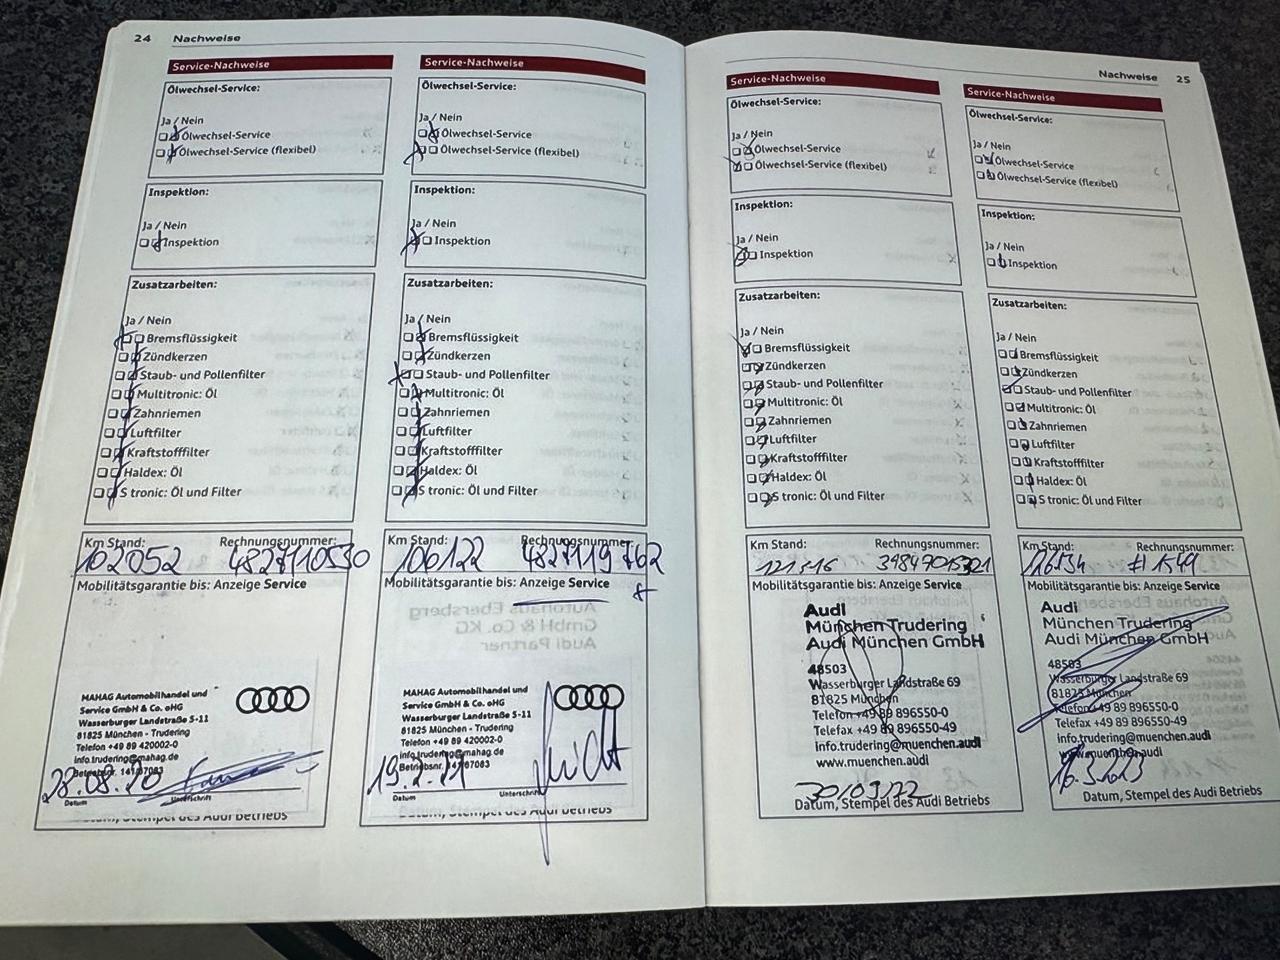 24 Nachweise
Service-Nachweise
Ölwechsel-Service:
Ja / Nein
Ölwechsel-Service
Ölwechsel-Service (flexibel)
Inspektion:
Ja / Nein
Inspektion
Zusatzarbeiten:
Ja / Nein
Bremsflüssigkeit
Zündkerzen
Staub- und Pollenfilter
Multitronic: Öl
Zahnriemen
Luftfilter
Kraftstofffilter
Haldex: Öl
S tronic: Öl und Filter
Km Stand: Rechnungsnummer:
102052 4827110530
Mobilitätsgarantie bis: Anzeige Service
MAHAG Automobilhandel und
Service GmbH & Co. oHG
Wasserburger Landstraße 5-11
81825 München - Trudering
Telefon +49 89 420002-0
info.trudering@mahag.de
Betriebsnr. 141/67083
28.08.20
Datum Unterschrift
Datum, Stempel des Audi Betriebs
Service-Nachweise
Ölwechsel-Service:
Ja / Nein
Ölwechsel-Service
Ölwechsel-Service (flexibel)
Inspektion:
Ja / Nein
Inspektion
Zusatzarbeiten:
Ja / Nein
Bremsflüssigkeit
Zündkerzen
Staub- und Pollenfilter
Multitronic: Öl
Zahnriemen
Luftfilter
Kraftstofffilter
Haldex: Öl
S tronic: Öl und Filter
Km Stand: Rechnungsnummer:
106122 4827119762
Mobilitätsgarantie bis: Anzeige Service
MAHAG Automobilhandel und
Service GmbH & Co. oHG
Wasserburger Landstraße 5-11
81825 München - Trudering
Telefon +49 89 420002-0
info.trudering@mahag.de
Betriebsnr. 141/67083
Datum Unterschrift
Datum, Stempel des Audi Betriebs
Nachweise 25
Service-Nachweise
Ölwechsel-Service:
Ja / Nein
Ölwechsel-Service
Ölwechsel-Service (flexibel)
Inspektion:
Ja / Nein
Inspektion
Zusatzarbeiten:
Ja / Nein
Bremsflüssigkeit
Zündkerzen
Staub- und Pollenfilter
Multitronic: Öl
Zahnriemen
Luftfilter
Kraftstofffilter
Haldex: Öl
S tronic: Öl und Filter
Km Stand: Rechnungsnummer:
Mobilitätsgarantie bis: Anzeige Service
Audi
München Trudering
Audi München GmbH
48503
Wasserburger Landstraße 69
81825 München
Telefon +49 89 896550-0
Telefax +49 89 896550-49
info.trudering@muenchen.audi
www.muenchen.audi
30/03/22
Datum, Stempel des Audi Betriebs
Service-Nachweise
Ölwechsel-Service:
Ja / Nein
Ölwechsel-Service
Ölwechsel-Service (flexibel)
Inspektion:
Ja / Nein
Inspektion
Zusatzarbeiten:
Ja / Nein
Bremsflüssigkeit
Zündkerzen
Staub- und Pollenfilter
Multitronic: Öl
Zahnriemen
Luftfilter
Kraftstofffilter
Haldex: Öl
S tronic: Öl und Filter
Km Stand: Rechnungsnummer:
Mobilitätsgarantie bis: Anzeige Service
Audi
München Trudering
Audi München GmbH
48503
Wasserburger Landstraße 69
81825 München
Telefon +49 89 896550-0
Telefax +49 89 896550-49
info.trudering@muenchen.audi
www.muenchen.audi
16.3.2023
Datum, Stempel des Audi Betriebs